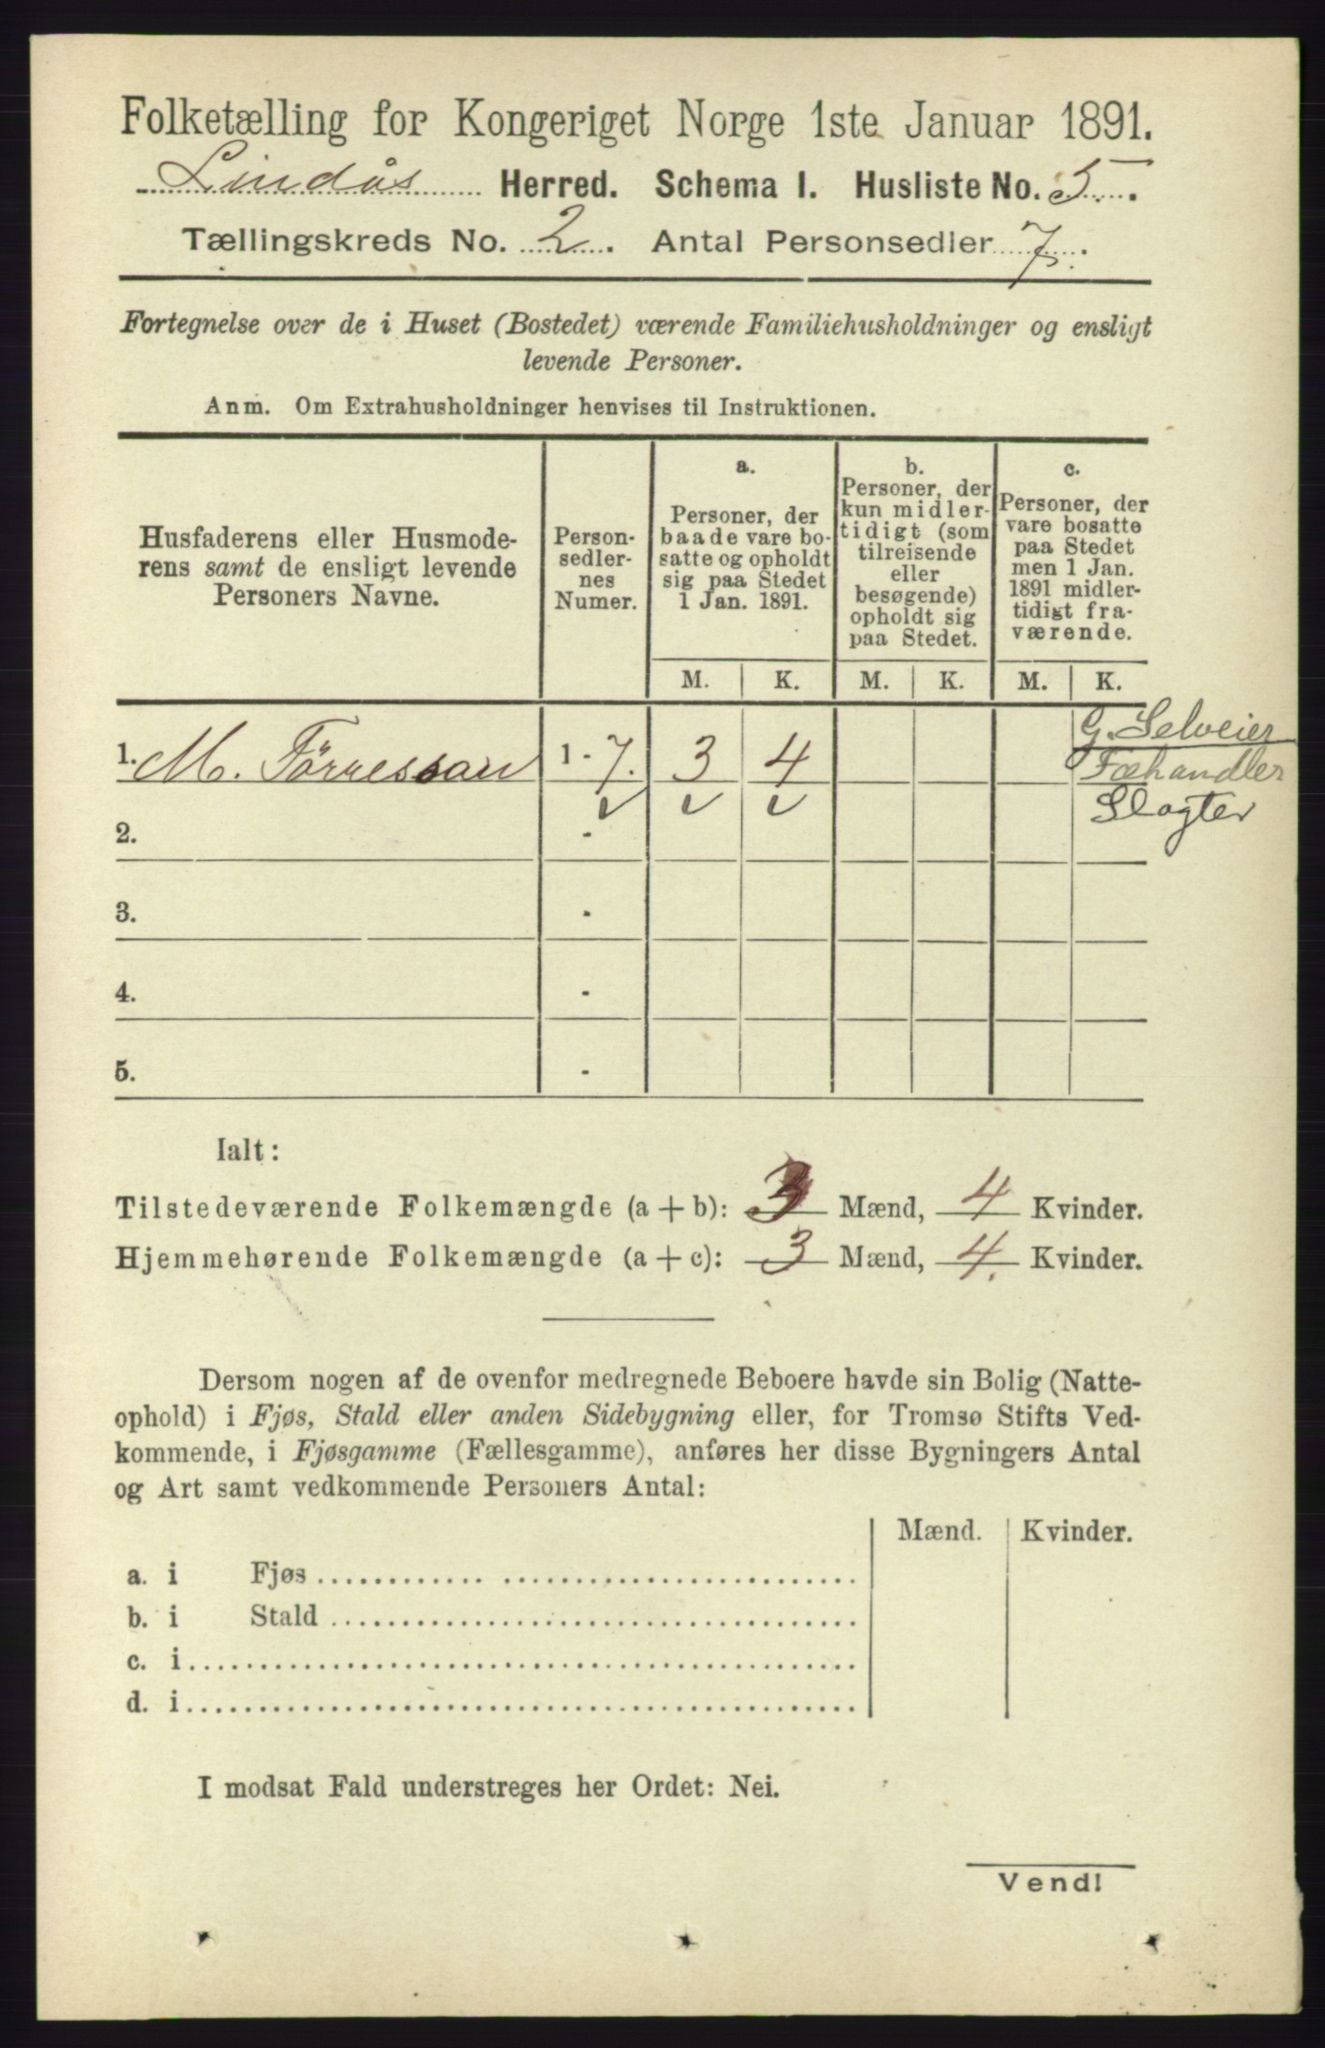 Folketælling for Kongeriget Norge 1ste Januar 1891.
Lindås Herred. Schema I. Husliste No. 5.
Tællingskreds No. 2. Antal Personsedler 7.
Fortegnelse over de i Huset (Bostedet) værende Familiehusholdninger og ensligt
levende Personer.
Anm. Om Extrahusholdninger henvises til Instruktionen.
Husfaderens eller Husmode-
rens samt de ensligt levende
Personers Navne.
Person-
sedler-
nes
Numer.
a.
Personer, der
baade vare bo-
satte og opholdt
sig paa Stedet
1 Jan. 1891.
b.
Personer, der
kun midler-
tidigt (som
tilreisende
eller
besøgende)
opholdt sig
paa Stedet.
c.
Personer, der
vare bosatte
paa Stedet
men 1 Jan.
1891 midler-
tidigt fra-
værende.
M. K. M. K. M. K.
G. Selveier
1. M. Törressen 1 - 7. 3 4 Fæhandler
Slagter
2. -
3. -
4. -
5. -
Ialt:
Tilstedeværende Folkemængde (a + b): 3 Mænd, 4 Kvinder.
Hjemmehørende Folkemængde (a + c): 3 Mænd, 4. Kvinder.
Dersom nogen af de ovenfor medregnede Beboere havde sin Bolig (Natte-
ophold) i Fjøs, Stald eller anden Sidebygning eller, for Tromsø Stifts Ved-
kommende, i Fjøsgamme (Fællesgamme), anføres her disse Bygningers Antal
og Art samt vedkommende Personers Antal:
Mænd. Kvinder.
a. i Fjøs
b. i Stald
c. i
d. i
I modsat Fald understreges her Ordet: Nei.
Vend!